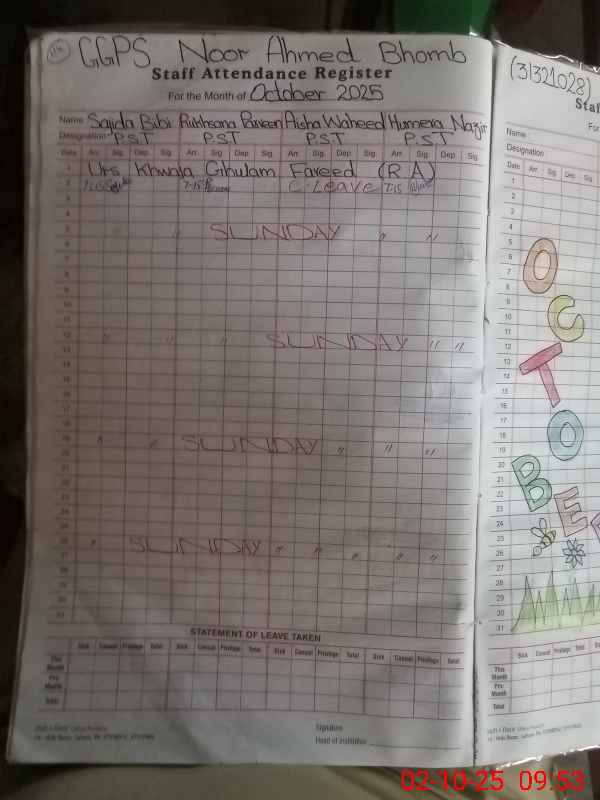 GGPS Noor Ahmed Bhomb
Staff Attendance Register
For the Month of October 2025
Name Sajida Bibi Rukhsana Parveen Aisha Waheed Humera Nazir
Designation P.S.T P.S.T P.S.T P.S.T
Date Arr. Sig. Dep. Sig. Arr. Sig. Dep. Sig. Arr. Sig. Dep. Sig. Arr. Sig. Dep. Sig.
1 Urs Khwaja Ghulam Fareed (R A)
2 7:15 7-15 C-Leave 7-15
3
4
5 " SUNDAY " "
6
7
8
9
10
11
12 " " " SUNDAY " "
13
14
15
16
17
18
19 " " SUNDAY " " "
20
21
22
23
24
25
26 " SUNDAY " " " " "
27
28
29
30
31
STATEMENT OF LEAVE TAKEN
Sick Casual Privilege Total Sick Casual Privilege Total Sick Casual Privilege Total Sick Casual Privilege Total
This Month
Pre Month
Total
Signature
Head of Institution
(31321028)
Staf
Fo
Name :
Designation
Date Arr. Sig. Dep. Sig.
1
2
3
4
5
6
7
8
9
10
11
12
13
14
15
16
17
18
19
20
21
22
23
24
25
26
27
28
29
30
31
OCTOBER
Sick Casual Privilege Total
This Month
Pre Month
Total
02-10-25 09:53